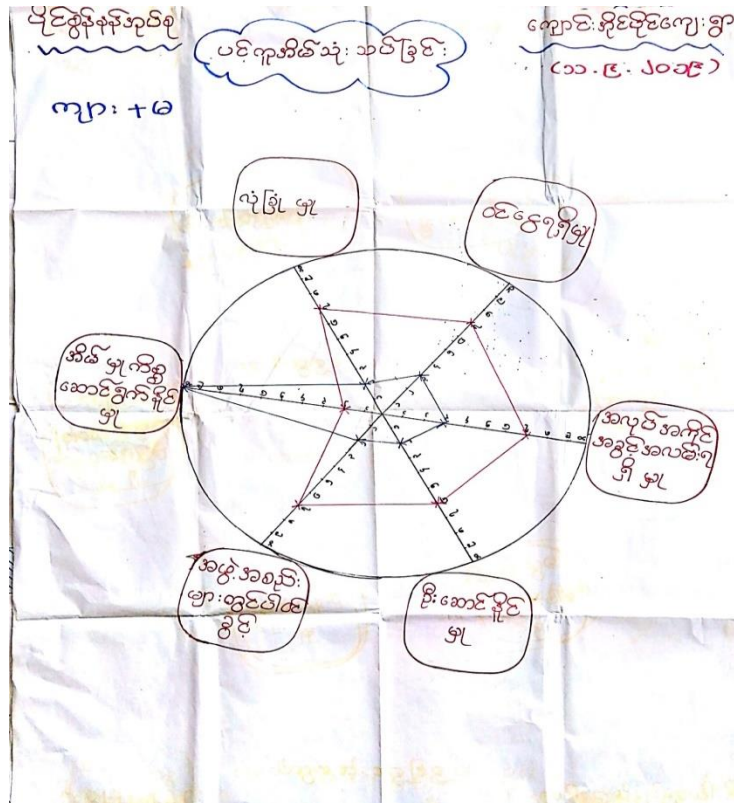 ပိုင်စွန်နန်အုပ်စု
ပင့်ကူအိမ်သုံးသပ်ခြင်း
ကျောင်းအိုင်ပိုင်ကျေးရွာ
(၁၁.၉.၂၀၁၉)
ကျား + မ
လုံခြုံ မှု
ဝင်ငွေရရှိမှု
အိမ်မှုကိစ္စ
ဆောင်ရွက်နိုင်
မှု
အလုပ်အကိုင်
အခွင့်အလမ်းရ
ရှိ မှု
အဖွဲ့အစည်း
များတွင်ပါဝင်
ခွင့်
ဦးဆောင်နိုင်
မှု